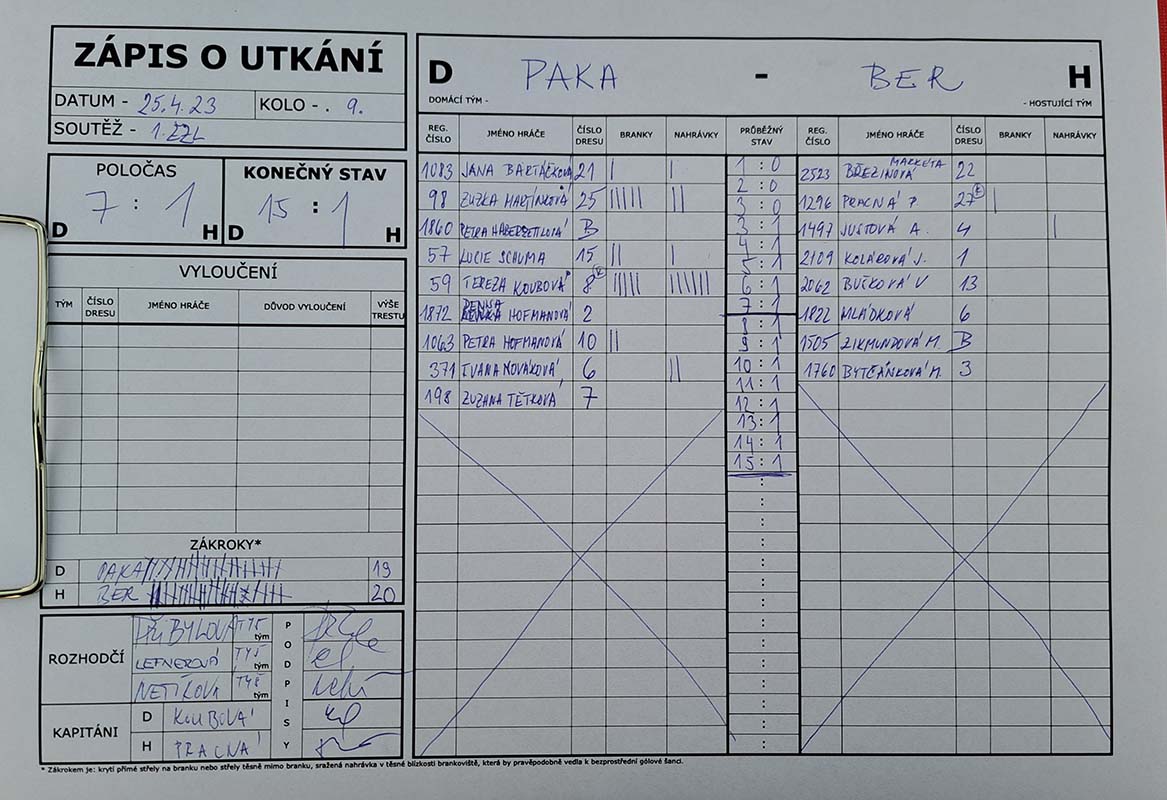 ZÁPIS O UTKÁNÍ
DATUM - 25.4.23 KOLO - . 9.
SOUTĚŽ - 1.ZZL
POLOČAS
7 : 1
D H
KONEČNÝ STAV
15 : 1
D H
VYLOUČENÍ
TÝM ČÍSLO DRESU JMÉNO HRÁČE DŮVOD VYLOUČENÍ VÝŠE TRESTU
ZÁKROKY*
D PAKA 19
H BER 20
ROZHODČÍ
PŘIBYLOVÁ tým
LEFNEROVÁ tým
NETÍKOVA tým
PODPISY
KAPITÁNI
D KOUBOVÁ
H PRACNÁ
D PAKA - BER H
DOMÁCÍ TÝM - - HOSTUJÍCÍ TÝM
REG. ČÍSLO JMÉNO HRÁČE ČÍSLO DRESU BRANKY NAHRÁVKY PRŮBĚŽNÝ STAV REG. ČÍSLO JMÉNO HRÁČE ČÍSLO DRESU BRANKY NAHRÁVKY
1083 JANA BARTÁČKOVÁ 21 | | 1 : 0 2523 BŘEZINOVÁ MARKÉTA 22
98 ZUZKA MARTÍNKOVÁ 25 ||||| || 2 : 0
3 : 0 1296 PRACNÁ P. 27 K |
1860 PETRA B 3 : 1 1497 JUSTOVÁ A. 4 |
4 : 1
57 LUCIE SCHUMA 15 || | 5 : 1 2109 KOLÁŘOVÁ J. 1
59 TEREZA KOUBOVÁ 8 K ||||| ||||||| 6 : 1 2062 BUČKOVÁ V 13
1872 LENKA HOFMANOVÁ 2 7 : 1 1822 MLÁDKOVÁ 6
8 : 1
1063 PETRA HOFMANOVÁ 10 || 9 : 1 1505 ZIKMUNDOVÁ M. B
371 IVANA NOVÁKOVÁ 6 || 10 : 1 1760 BYTČÁNKOVÁ M. 3
11 : 1
198 ZUZANA TĚTKOVÁ 7 12 : 1
13 : 1
14 : 1
15 : 1
* Zákrokem je: krytí přímé střely na branku nebo střely těsně mimo branku, sražená nahrávka v těsné blízkosti brankoviště, která by pravěpodobně vedla k bezprostřední gólové šanci.